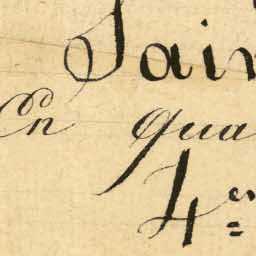 Sain
En qua
4er